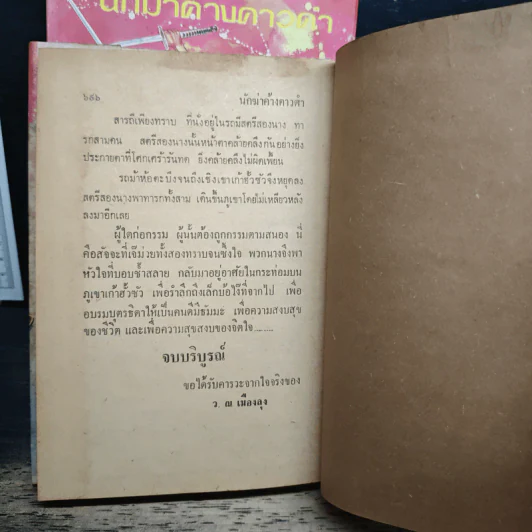 นักฆ่าค้างคาวดำ
๖๑๖
นักฆ่าค้างคาวดำ
สารถีเพียงทราบ ที่นั่งอยู่ในรถมีสตรีสองนาง ทา
รกสามคน สตรีสองนางนั้นหน้าตาคล้ายคลึงกันอย่างยิ่ง
ประกายตาที่โศกเศร้ารันทด ยิ่งคล้ายคลึงไม่ผิดเพี้ยน
รถม้าห้อตะบึงจนถึงเชิงเขาเก้าฮั้วซัวจึงหยุดลง
สตรีสองนางพาทารกทั้งสาม เดินขึ้นภูเขาโดยไม่เหลียวหลัง
ลงมาอีกเลย
ผู้ใดก่อกรรม ผู้นั้นต้องถูกกรรมตามสนอง นี่
คือสัจจะที่เจ๊ม่วยทั้งสองทราบจนซึ้งใจ พวกนางจึงพา
หัวใจที่บอบช้ำสลาย กลับมาอยู่อาศัยในกระท่อมบน
ภูเขาเก้าฮั้วซัว เพื่อรำลึกถึงเล็กบ้อโง้วที่จากไป เพื่อ
อบรมบุตรธิดาให้เป็นคนดีมีธัมมะ เพื่อความสงบสุข
ของชีวิต และเพื่อความสุขสงบของจิตใจ........
จบบริบูรณ์
ขอได้รับคารวะจากใจจริงของ
ว. ณ เมืองลุง